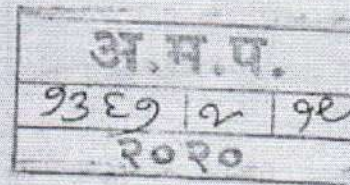 अ.म.प.
१३६१ | २ | १९
२०२०